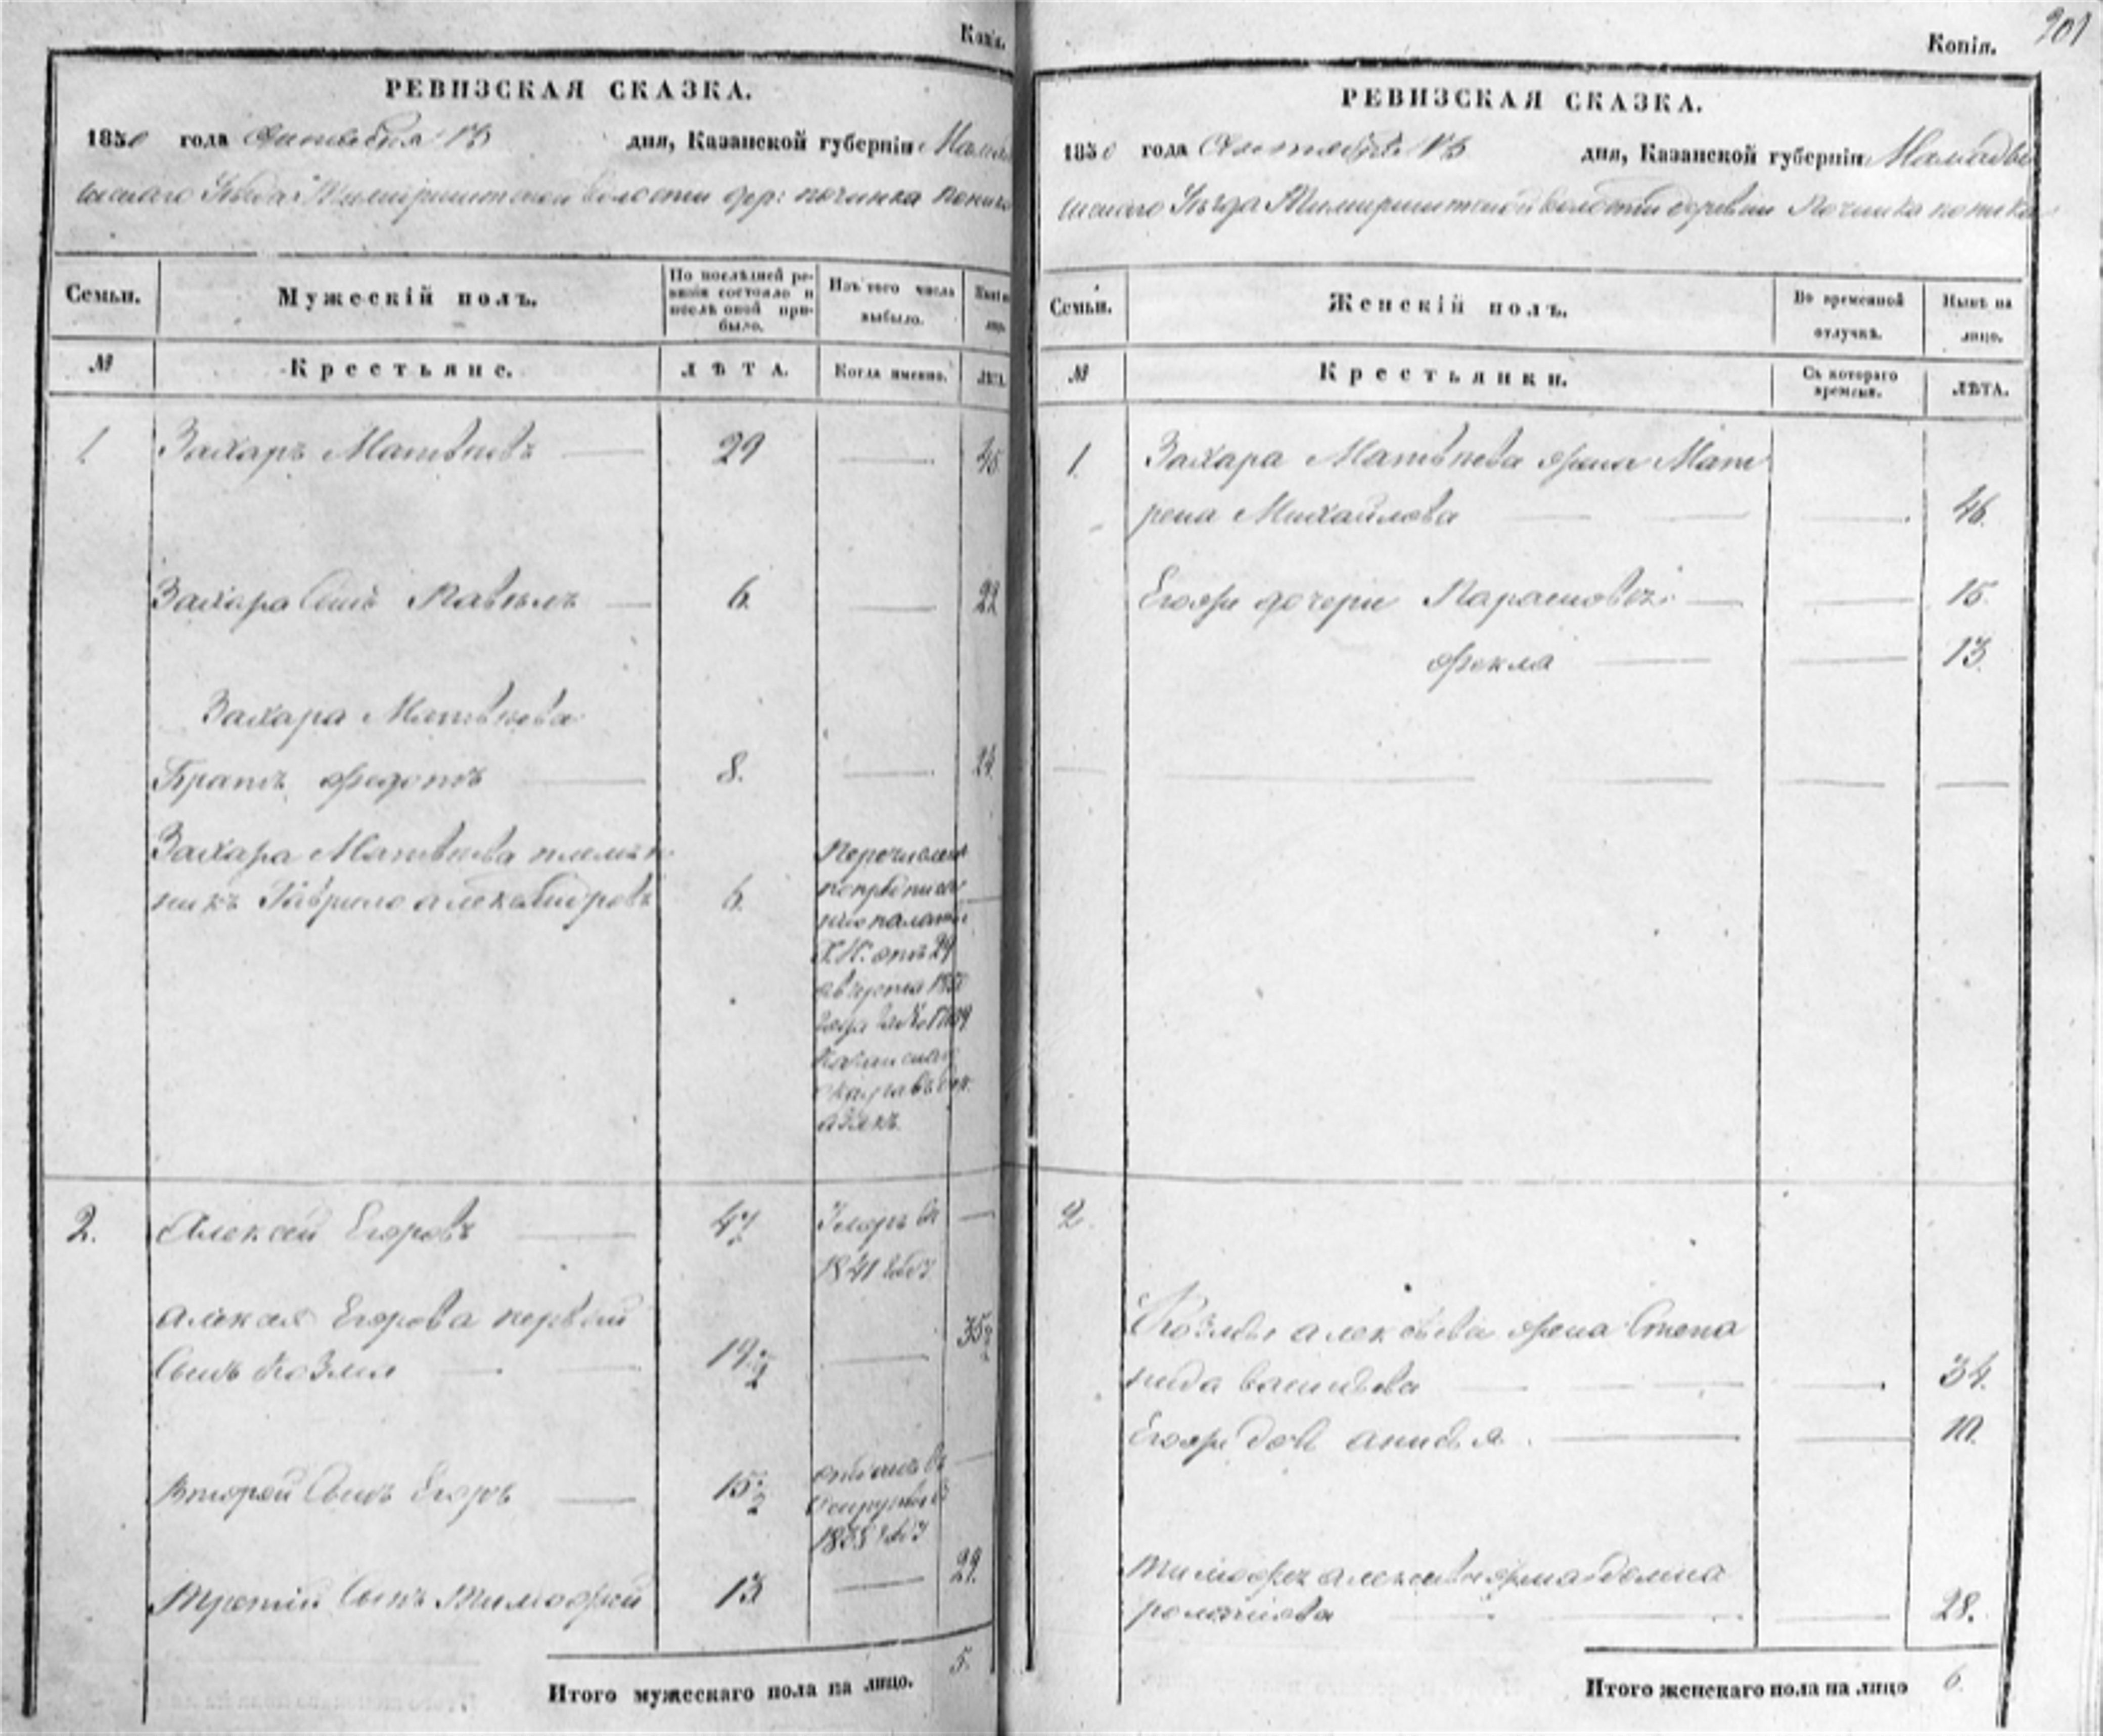 Копія.
РЕВИЗСКАЯ СКАЗКА.
1850 года Октября 13 дня, Казанской губерніи Мама
уезда волости дер: починка
Семьи.
Мужескій полъ.
По послѣдней ре-
визіи состояло и
послѣ оной при-
было.
Изъ того числа
выбыло.
№
Крестьяне.
ЛѢТА.
Когда именно.
ЛѢТА.
1
Захаръ Матвѣевъ
29
45
Захара Сынъ Павелъ
6.
22
Захара Матвѣева
Братъ Федотъ
8.
24.
Захара Матвѣева племян
никъ Гаврило Александровъ
6.
Перечисленъ
по предписа
нію палаты
Г.И. отъ 29
августа 1850
года за №
2.
Алексей Егоровъ
47
Умеръ въ
1841 году
Алексея Егорова первый
сынъ Козма
19 1/2
35 1/2
Второй сынъ Егоръ
15 1/2
отданъ въ
рекруты въ
1855 году
Третій сынъ Тимофей
13
29.
Итого мужескаго пола на лицо.
5.
201
Копія.
РЕВИЗСКАЯ СКАЗКА.
1850 года Октября 13 дня, Казанской губерніи Мамады
шскаго Уѣзда волости деревни Починка
Семьи.
Женскій полъ.
Во временной
отлучкѣ.
Нынѣ на
лицо.
№
Крестьянки.
Съ котораго
времени.
ЛѢТА.
1.
Захара Матвѣева жена Мат
рена Михайлова
46.
Егожъ дочери Парасковья
15.
Фекла
13.
2.
Козмы Алексѣева жена Степа
нида Васильева
34.
Егожъ дочь Анисья
10.
Тимофея Алексѣева жена Домна
28.
Итого женскаго пола на лицо
6.